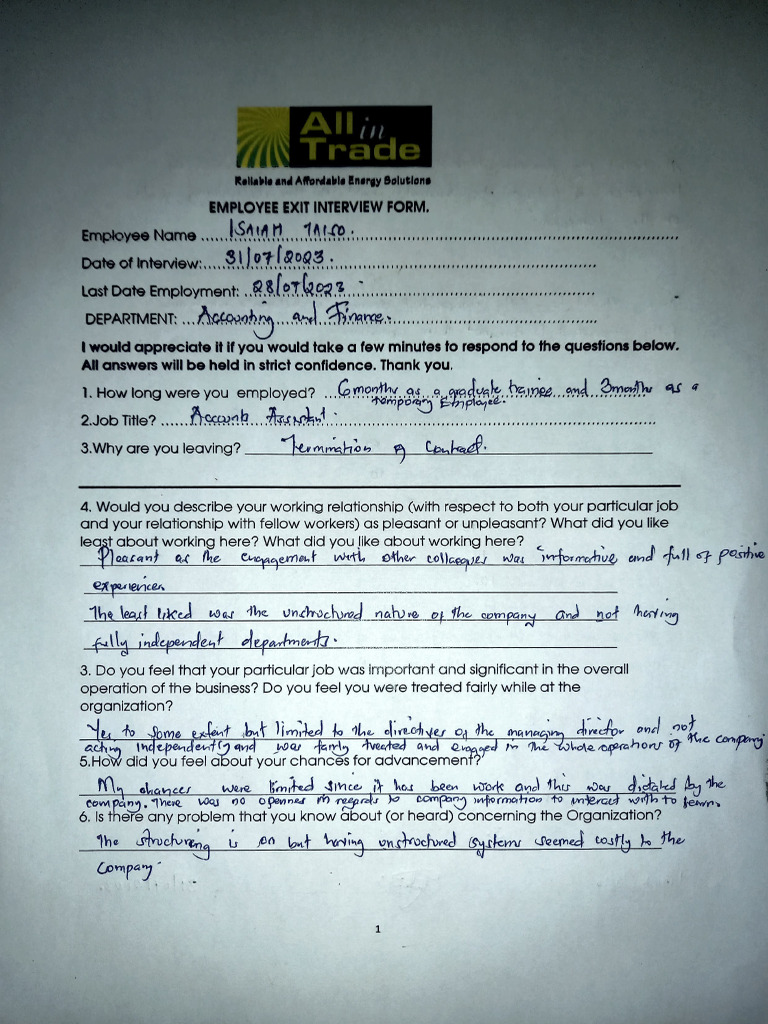 All in
Trade
Reliable and Affordable Energy Solutions
EMPLOYEE EXIT INTERVIEW FORM.
Employee Name ISAIAH TAISO.
Date of Interview: 31/07/2023.
Last Date Employment: 28/07/2023
DEPARTMENT: Accounting and Finance.
I would appreciate it if you would take a few minutes to respond to the questions below.
All answers will be held in strict confidence. Thank you.
1. How long were you employed? 6months as a graduate trainee and 3months as a
temporary Employee.
2.Job Title? Accounts Assistant.
3.Why are you leaving? Termination of Contract.
4. Would you describe your working relationship (with respect to both your particular job
and your relationship with fellow workers) as pleasant or unpleasant? What did you like
least about working here? What did you like about working here?
Pleasant as the engagement with other colleagues was informative and full of positive
experiences
The least liked was the unstructured nature of the company and not having
fully independent departments.
3. Do you feel that your particular job was important and significant in the overall
operation of the business? Do you feel you were treated fairly while at the
organization?
Yes to some extent but limited to the directives of the managing director and not
acting independently and was fairly treated and engaged in the whole operations of the company.
5.How did you feel about your chances for advancement?
My chances were limited since it has been work and this was dictated by the
company. There was no opennes in regards to company information to interact with to learn.
6. Is there any problem that you know about (or heard) concerning the Organization?
The structuring is on but having unstructured systems seemed costly to the
Company.
1